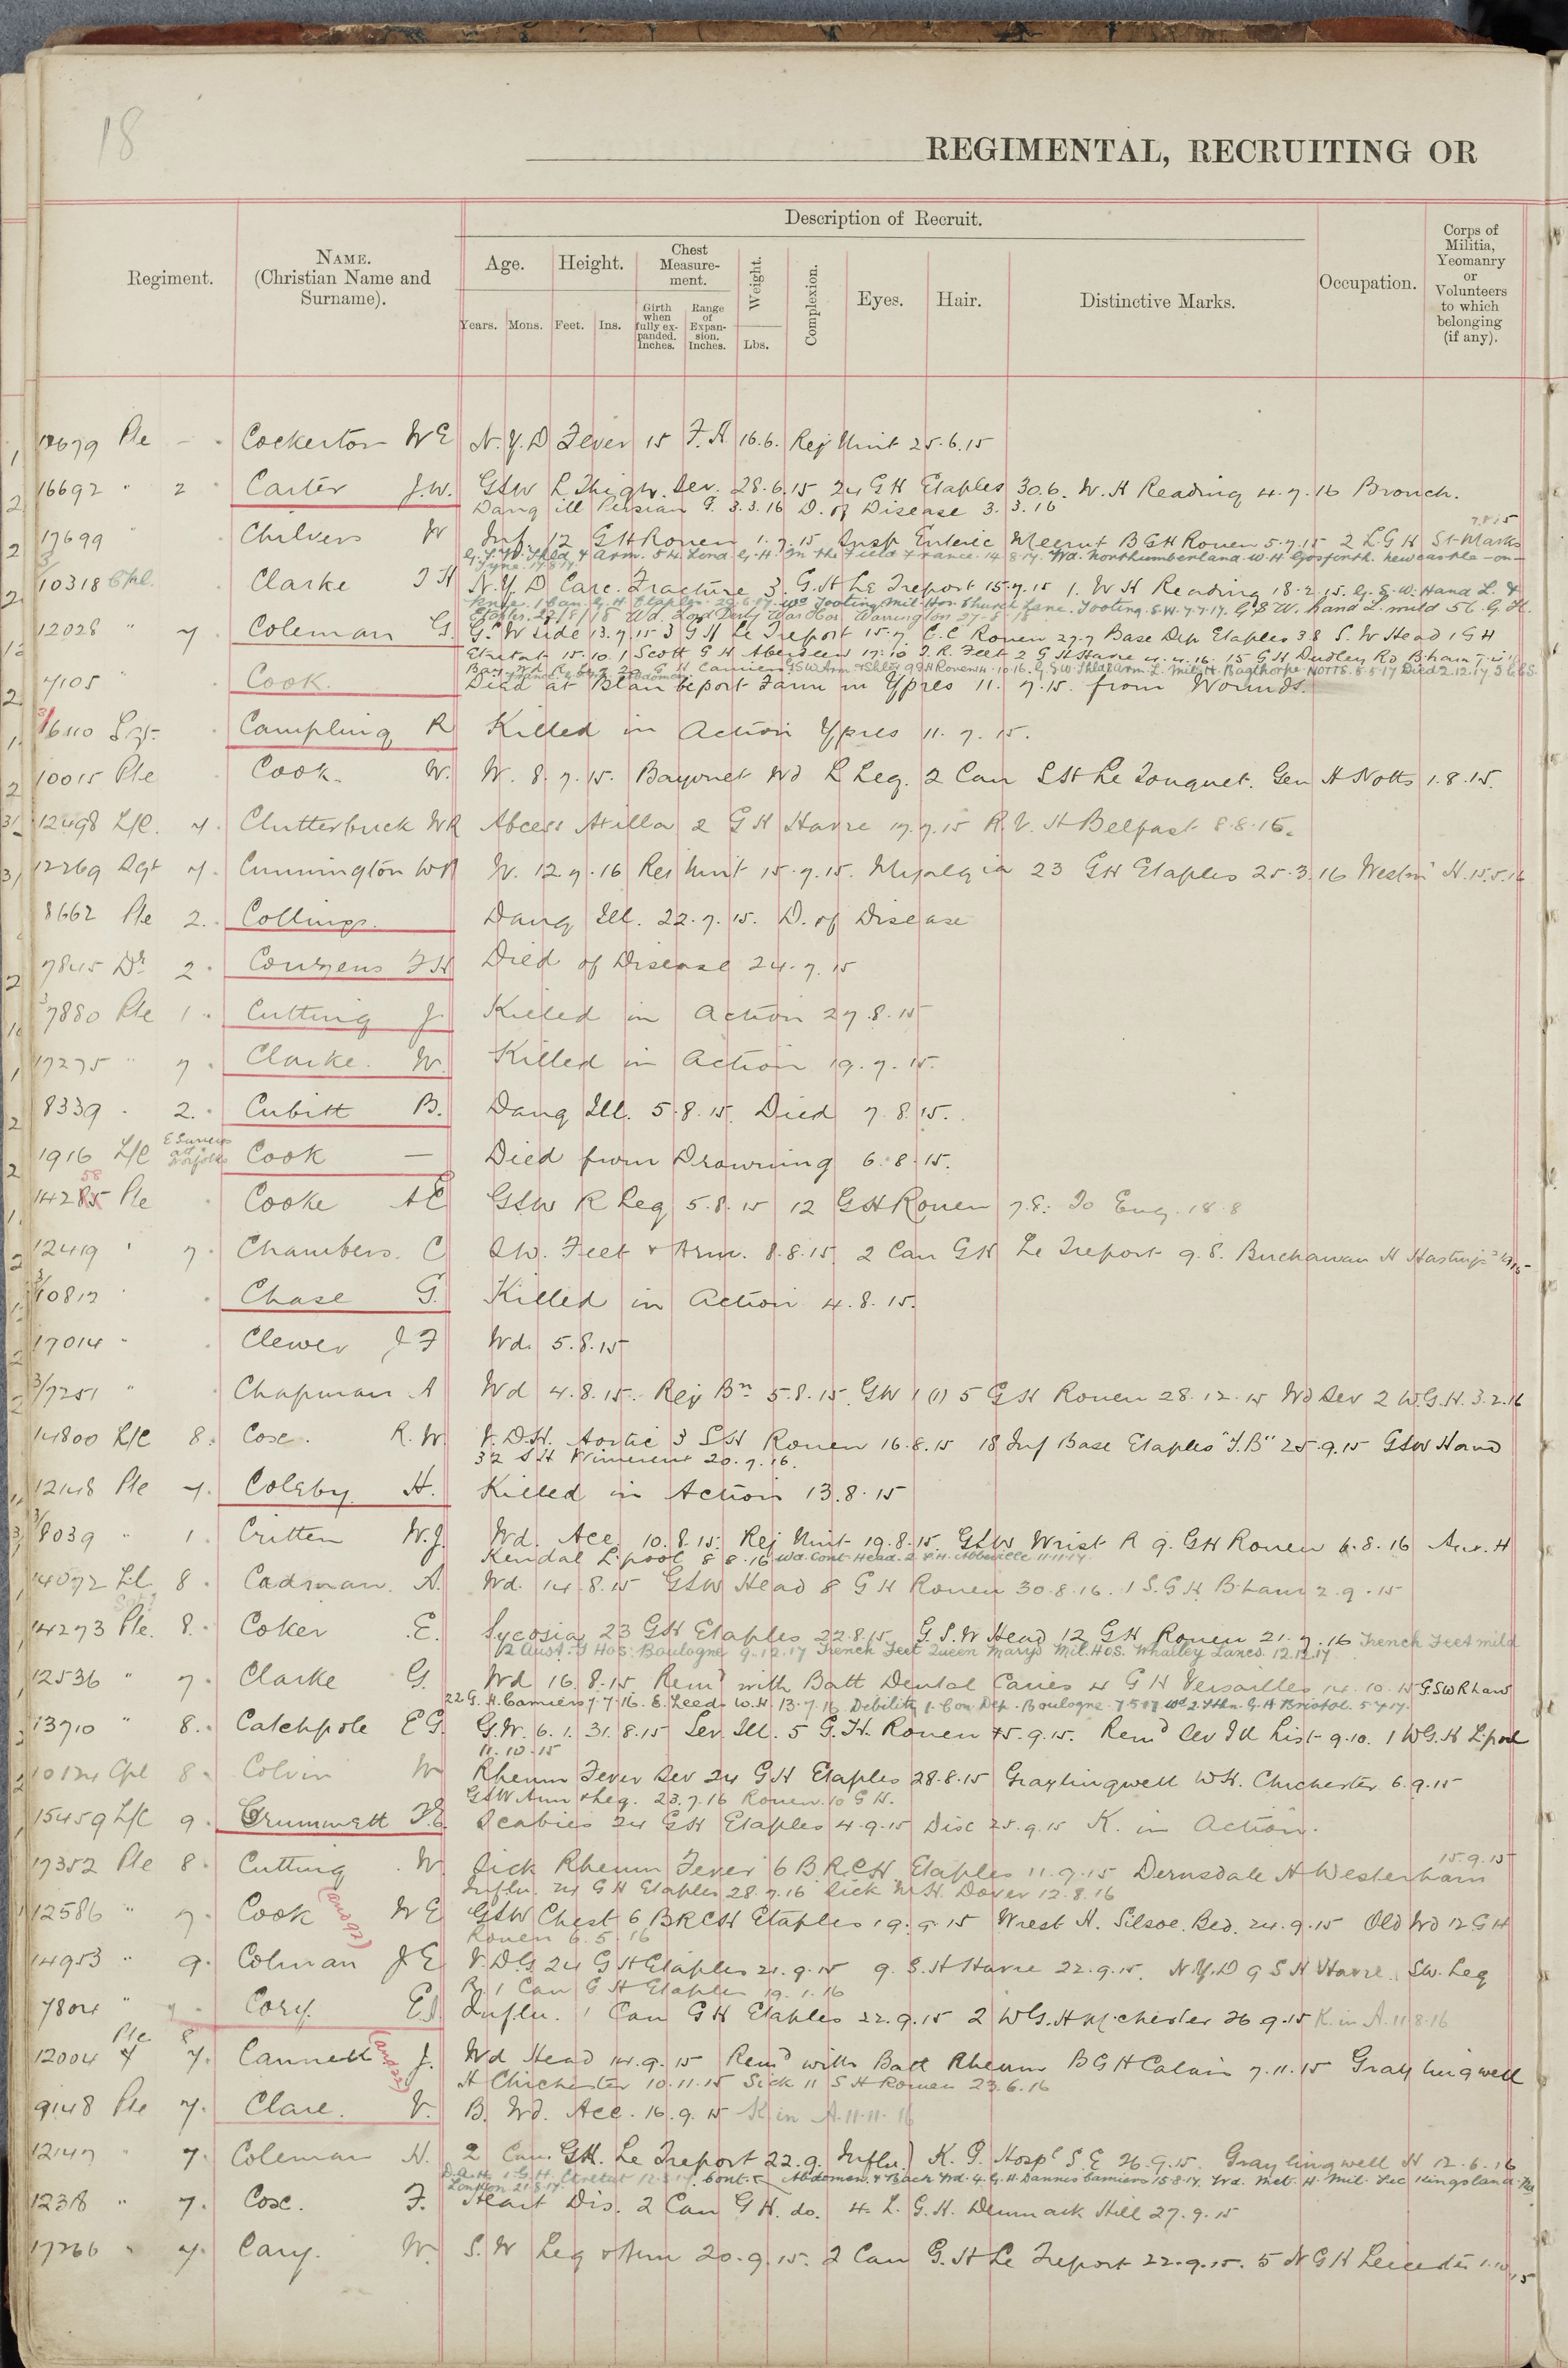 18
REGIMENTAL, RECRUITING OR
Description of Recruit.
Regiment.
NAME.
(Christian Name and
Surname).
Age.
Height.
Chest
Measure-
ment.
Weight.
Complexion.
Eyes.
Hair.
Distinctive Marks.
Occupation.
Corps of
Militia,
Yeomanry
or
Volunteers
to which
belonging
(if any).
Years. Mons. Feet. Ins.
Girth
when
fully ex-
panded.
Inches.
Range
of
Expan-
sion.
Inches.
Lbs.
Pte Cockerton W E N.Y.D Fever 15 F.A 16.6. Rej Unit 25.6.15
16692 " 2 Carter J.W. GSW L Thigh. Sev. 28.6.15 24 GH Etaples 30.6. W.H Reading 4.7.16 Bronch.
Dang ill Persian G. 3.3.16 D. of Disease 3.3.16
17699 " Chilvers W Inf. 12 GH Rouen 1.7.15 Susp Enteric Meerut B GH Rouen 5.7.15 2 L.G H St Marks
G.S.W. Shld & Arm. 5 Lond. G.H. In the Field France. 14.8.17. Wd. Northumberland W.H Gosforth. Newcastle-on-
Tyne. 19.8.17.
3/10318 Cpl. Clarke J H N.Y.D Carc. Fracture 3. G.H Le Treport 15.7.15 1. W H Reading 18.2.15. G.S.W. Hand L. &
1 Can. G. H Etaples. Wd Tooting Mil. Hos. Church Lane. Tooting. S.W. 7.7.17. G S W. hand L. mild 56. G. H.
Etaples. 22/8/18 Wd. Lord Derby War Hos Warrington 27-8-18
12028 " 7 Coleman G. G.S W Side 13.7.15 3 G H Le Treport 15.7. C.C Rouen 27.7 Base Dep Etaples 3.8 S. W Head 1 G H
Etretat 15.10. 1 Scott G H Aberdeen 17.10 T.R. Feet 2 G H Havre 15 G H Dudley Rd B.ham
7105 " Cook. Died at Blauwepoort Farm in Ypres 11. 7.15. from Wounds.
3/6110 Campling R Killed in Action Ypres 11. 7. 15.
10015 Pte Cook. W. W. 8. 7. 15. Bayonet Wd L Leg. 2 Can S H Le Touquet. Gen H Notts 1.8.15.
12498 L/C. 7. Clutterbuck W R Abcess Axilla 2 G H Havre 17.7.15 R.V. H Belfast 8.8.15.
12269 Sgt 7. Cunnington W R W. 12.7.16 Rej Unit 15.7.15. Myalgia 23 GH Etaples 25.3.16 Westn H. 15.5.16
8662 Pte 2. Collings. Dang Ill. 22.7.15. D. of Disease
7845 Dr 2. Couzens F H Died of Disease 24.7.15
3/7880 Pte 1. Cutting J. Killed in Action 27.8.15
17275 " 7. Clarke. W. Killed in Action 19.7.15.
8339 . 2. Cubitt B. Dang Ill. 5.8.15. Died 7.8.15.
1916 L/C E Surreys att Norfolks Cook — Died from Drowning 6.8.15.
58
14285 Pte Cooke A E GSW R Leg 5.8.15 12 GH Rouen 7.8. To Eng. 18.8
12419 " 7. Chambers. C SW. Feet & Arm. 8.8.15. 2 Can GH Le Treport 9.8. Buchanan H Hastings
3/10812 " Chase G. Killed in Action 4.8.15.
17014 " Clewer J F Wd. 5.8.15
3/7251 " Chapman A Wd 4.8.15. Rej Bn 5.8.15. GW 5 G H Rouen 28.12.15 Wd Sev 2 W.G.H. 3.2.16
14800 L/C 8. Coxe. R. W. V.D.H. Aortic 3 S H Rouen 16.8.15 18 Inf Base Etaples "T.B" 25.9.15 GSW Hand
32 S H Wimereux 20.7.16.
12148 Pte 7. Coleby H. Killed in Action 13.8.15
3/8039 " 1. Critten W.J. Wd. Acc. 10.8.15. Rej Unit 19.8.15. GSW Wrist R 9. GH Rouen 6.8.16 Aux. H
Kendal L.pool 8 8.16 Wd. Cont. Head. 2 S.H. Abbeville 11.11.17.
14072 8. Cadman. A. Wd. 14.8.15 GSW Head 8 G H Rouen 30.8.16. 1 S.G H B.ham 2.9.15
14273 Pte. 8. Coker .E. Sycosia 23 GH Etaples 22.8.15 G.S.W Head 12 G H Rouen 21.7.16 Trench Feet mild
12 Aust. G Hos. Boulogne 9.12.17 Trench Feet Queen Marys Mil. Hos. Whalley Lancs. 12.12.17
12536 " 7. Clarke G. Wd 16.8.15. Remd with Batt Dental Caries 4 G H Versailles 14.10.15 G.S.W R hand
22 G.H. Camiers 7.7.16. E. Leeds W.H. 13.7.16 Debility 1 Con Dep. Boulogne. 7.5.17 Wd 2 Sthn. G. H Bristol. 5.7.17.
13710 " 8. Catchpole E G. G.W. 6.1. 31.8.15 Sev. Ill. 5 G.H. Rouen 5.9.15. Remd Sev Ill List 9.10. 1 W G.H L.pool
11.10.15
10124 Cpl 8 Colvin W Rheum Fever Sev 24 G H Etaples 28.8.15 Graylingwell W H. Chichester 6.9.15
GSW Arm & Leg. 23.7.16 Rouen. 10 G H.
15459 L/C 9. Crummett F.E. Scabies 24 GH Etaples 4.9.15 Disc 25.9.15 K. in Action.
17352 Pte 8. Cutting .W. Sick Rheum Fever 6 B.R.C.H. Etaples 11.9.15 Dernsdale H Westerham 15.9.15
Influ. 24 G H Etaples 28.7.16 Sick M.H. Dover 12.8.16
12586 " 7. Cook W E GSW Chest 6 BRCH Etaples 19.9.15 Wrest H. Silsoe. Bed. 24.9.15 Old Wd 12 G H
Rouen 6.5.16
14953 " 9. Colman J E V.D.G. 24 G H Etaples 21.9.15 9. S. H Havre 22.9.15. N.Y.D 9 S H Havre. SW. Leg
R. 1 Can G H Etaples 19.1.16
7804 " Cory. E J. Influ. 1 Can G H Etaples 22.9.15 2 W G.H M.chester 26.9.15 K. in A. 11.8.16
12004 Pte 7. Cannell J. Wd Head 14.9.15 Remd with Batt Rheum B G H Calais 7.11.15 Graylingwell
H Chichester 10.11.15 Sick 11 S H Rouen 23.6.16
9148 Pte 7. Clare. V. B. Wd. Acc. 16.9.15 K in A. 11.11.16
12147 " 7. Coleman H. 2 Can. GH. Le Treport 22.9. Influ.) K. G Hospl S E 26.9.15. Graylingwell H 12.6.16
D.A.H. 1 G.H. Etretat Cont. Abdomen. & Back Wd. 4. G. H. Dannes Camiers 15.8.17. Wd. Met. H. Mil. Sec Kingsland. Rd
London 21.8.17.
12318 " 7. Coxe. F. Heart Dis. 2 Can G H. do. 4. L. G. H. Denmark Hill 27.9.15
17266 " 7. Cary. W. S. W Leg & Arm 20.9.15. 2 Can G. H Le Treport 22.9.15. 5 N G H Leicester 1.10.15